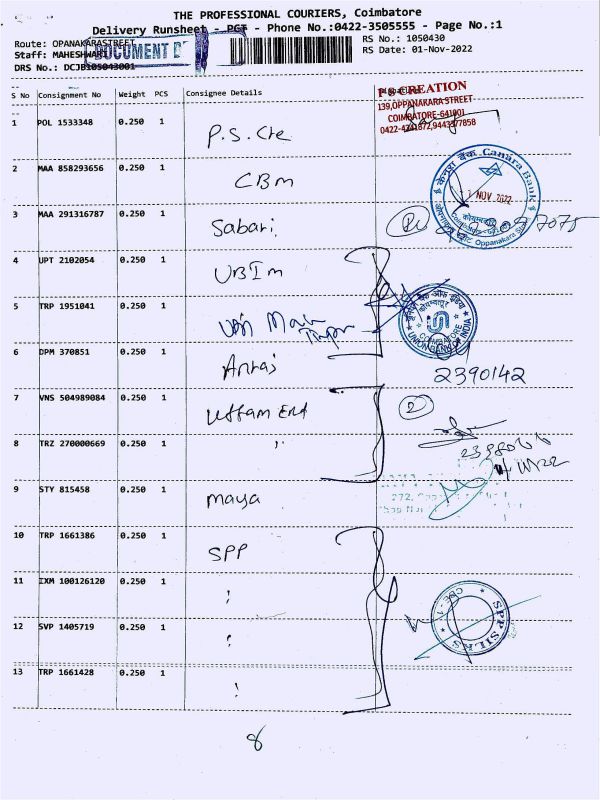 THE PROFESSIONAL COURIERS, Coimbatore
Delivery Runsheet - PGT - Phone No.:0422-3505555 - Page No.:1
Route: OPANAKARASTREET
RS No.: 1050430
Staff: MAHESHWARI
DOCUMENT
RS Date: 01-Nov-2022
DRS No.: DCJB105043001
S No Consignment No Weight PCS Consignee Details
P S CREATION
139, OPPANAKARA STREET
COIMBATORE-641001
1 POL 1533348 0.250 1 P.S. Cre
2 MAA 858293656 0.250 1 CBM
केनरा बैंक Canara Bank
NOV 2022
Oppanakara
3 MAA 291316787 0.250 1 Sabari
4 UPT 2102054 0.250 1 UBIM
5 TRP 1951041 0.250 1
COIMBATORE
UNION BANK OF INDIA
6 DPM 370851 0.250 1
2390142
7 VNS 504989084 0.250 1 Uttam End
2
8 TRZ 270000669 0.250 1 "
272,
9 STY 815458 0.250 1 Maya
10 TRP 1661386 0.250 1 SPP
11 IXM 100126120 0.250 1
12 SVP 1405719 0.250 1
SPP SILKS
CBE - 1
13 TRP 1661428 0.250 1
8